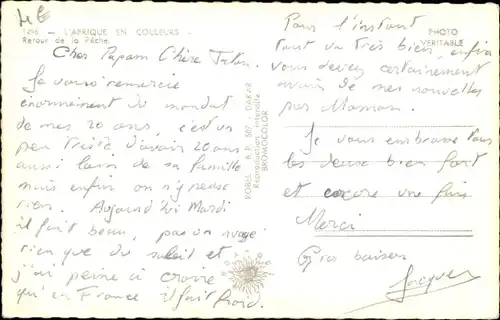 4€
1496 - L'AFRIQUE EN COULEURS -
Retour de la Pêche.
Cher Papam Chère Taten
Je vous remercie
énormement du mandat
de mes 20 ans, c'est un
peu triste d'avoir 20 ans
aussi loin de sa famille
mais enfin on n'y peut
rien. Aujourd'hui Mardi
il fait beau, pas un nuage
rien que du soleil et
j'ai peine à croire
qu'en France il fait froid.
HOBEL - B.P. 507 - DAKAR
Reproduction interdite
BROMOCOLOR
PHOTO
VERITABLE
Pour l'instant
tout va très bien, enfin
vous devez certainement
avoir de mes nouvelles
par Maman.
Je vous embrasse tous
les deux bien fort
et encore une fois
Merci
Gros baisers
Jacques